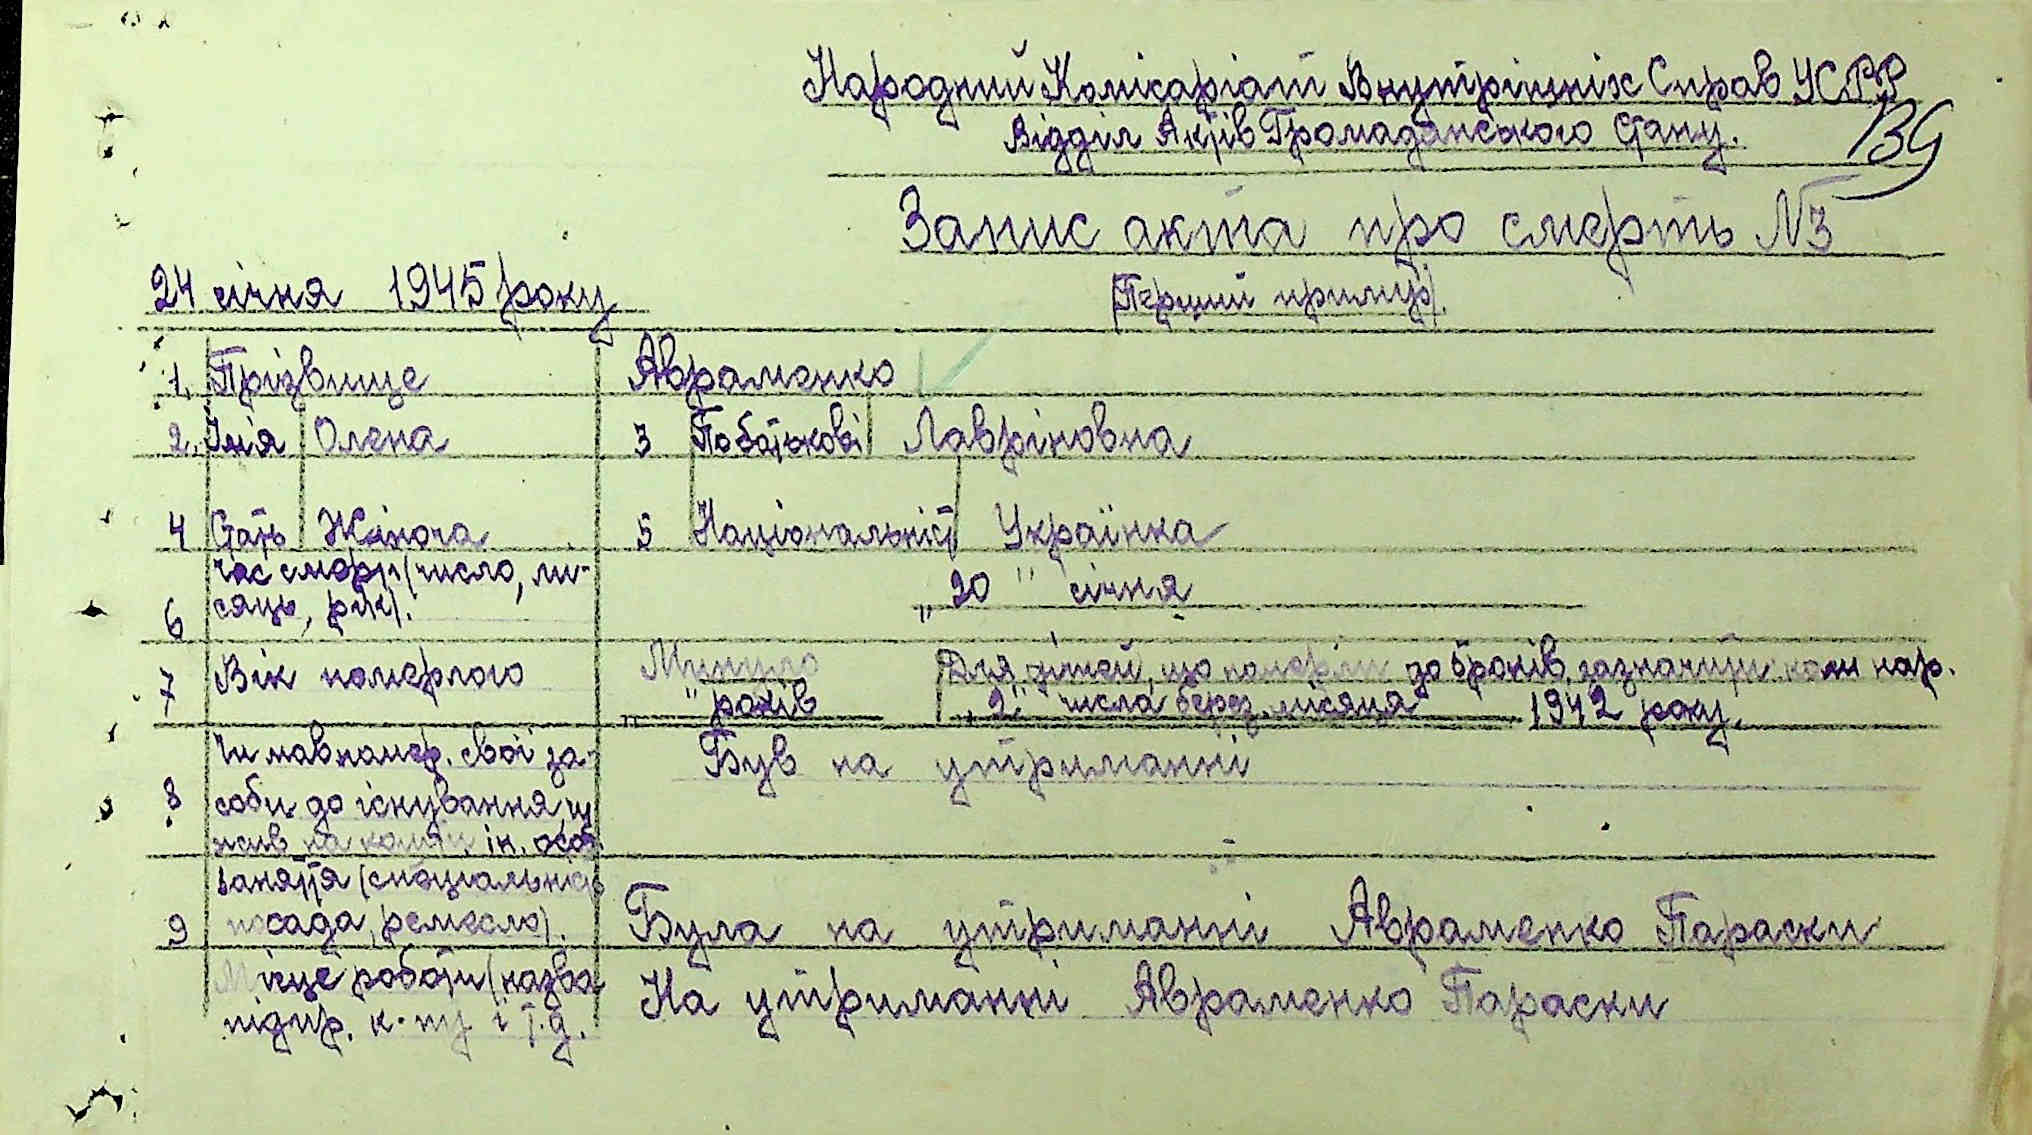 Народний Комісаріат Внутрішніх Справ УСРР
Відділ Актів Громадянського Стану.
139
Запис акта про смерть №3
24 січня 1945 року
(Перший примір).
1. Прізвище Авраменко
2. Імя Олена 3 Побатькові Лавріновна
4 Стать Жіноча 5 Національність Українка
час смерти (число, мі-
6 сяць, рік). „20" січня
7 Вік померлого Минуло Для дітей, що померли до 5 років, зазначити коли нар.
„ " років „2" числа берез. місяця 1942 року.
Чи мав помер. свої за- Був на утриманні
8 соби до існування, чи
жив на кошти ін. особ.
Заняття (спеціальність
9 посада, ремесло). Була на утриманні Авраменко Параски
Місце роботи (назва На утриманні Авраменко Параски
підпр. к-ву і т.д.